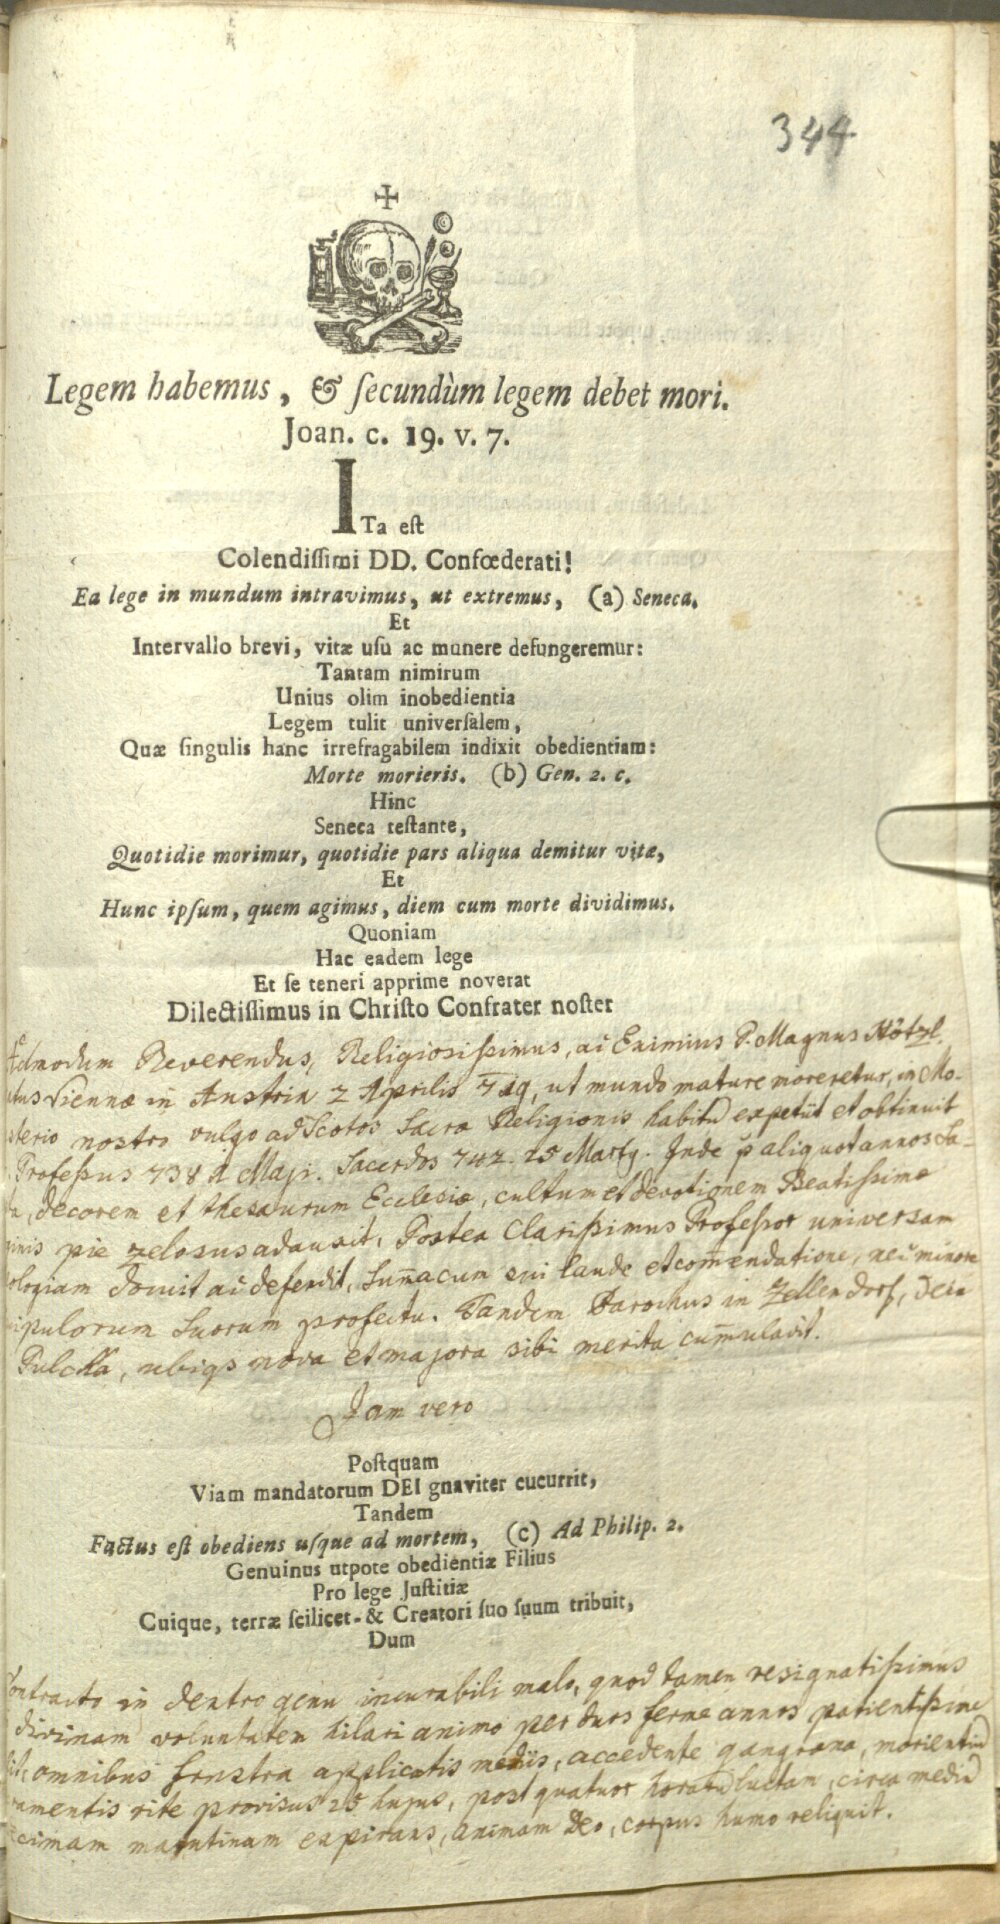 344
Legem habemus, & ſecundùm legem debet mori.
Joan. c. 19. v. 7.
ITa eſt
Colendiſſimi DD. Confœderati!
Ea lege in mundum intravimus, ut extremus, (a) Seneca.
Et
Intervallo brevi, vitæ uſu ac munere defungeremur:
Tantam nimirum
Unius olim inobedientia
Legem tulit univerſalem,
Quæ ſingulis hanc irrefragabilem indixit obedientiam:
Morte morieris. (b) Gen. 2. c.
Hinc
Seneca teſtante,
Quotidie morimur, quotidie pars aliqua demitur vitæ,
Et
Hunc ipſum, quem agimus, diem cum morte dividimus.
Quoniam
Hac eadem lege
Et ſe teneri apprime noverat
Dilectiſſimus in Chriſto Confrater noſter
Admodum Reverendus, Religiosiſsimus, ac Eximius P. Magnus Hötzl.
tus Viennæ in Austria 2 Aprilis 719, ut mundo mature moreretur, in Mo-
sterio nostro vulgo ad Scotos Sacræ Religionis habitū expetiit et obtinuit
Profeſsus 738 Maji. Sacerdos 742. 25 Martÿ. Inde p aliquot annos Sa-
decorem et thesaurum Ecclesiæ, cultum et devotionem Beatiſsimæ
ginis pie zelosus adauxit, Postea Clariſsimus Profeſsor universam
ologiam docuit ac defendit, sum̄a cum sui laude et com̄endatione, nec minore
cipulorum suorum profectu. Tandem Parochus in Zellerndorf, Dein
Pulcka, ubiqs nova et majora sibi merita cum̄ulavit.
Jam vero
Poſtquam
Viam mandatorum DEI gnaviter cucurrit,
Tandem
Factus eſt obediens uſque ad mortem, (c) Ad Philip. 2.
Genuinus utpote obedientiæ Filius
Pro lege Juſtitiæ
Cuique, terræ ſcilicet- & Creatori ſuo ſuum tribuit,
Dum
Contracto in dextro genu incurabili malo, quod tamen resignatiſsimus
divinam voluntatem hilari animo per duos ferme annos patientiſsime
lit, omnibus frustra applicatis mediis, accedente gangræna, morientiū
ramentis rite provisus 25 hujus, post quatuor horarū luctam, circa mediā
ecimam matutinam expirans, animam Deo, corpus humo reliquit.